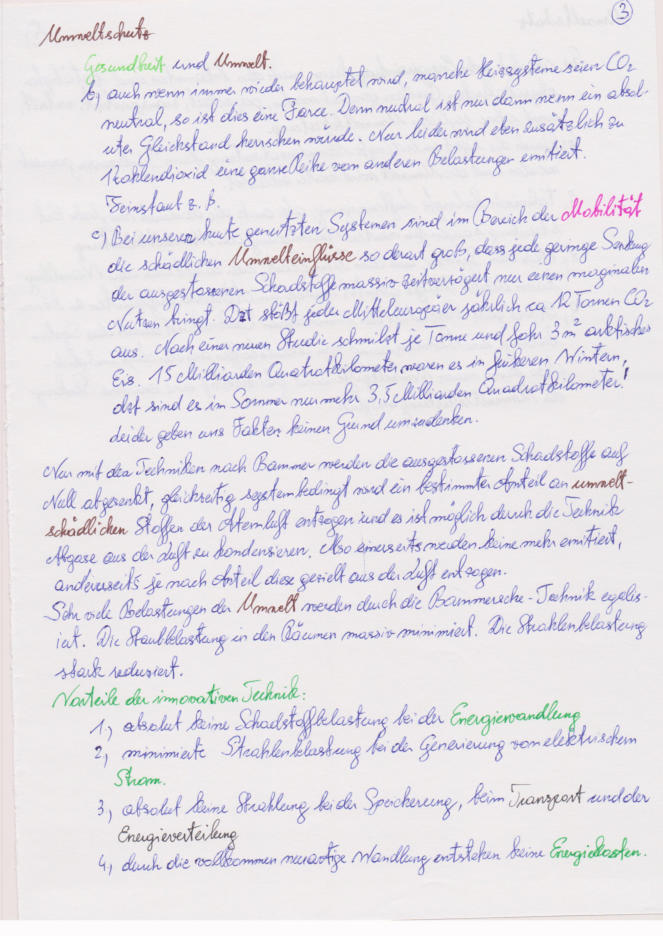 3
Umweltschutz
Gesundheit und Umwelt.
b) auch wenn immer wieder behauptet wird, manche Heizsysteme seien CO2
neutral, so ist dies eine Farce. Denn neutral ist nur dann wenn ein absol-
uter Gleichstand herrschen würde. Nur leider wird eben zusätzlich zu
Kohlendioxid eine ganze Reihe von anderen Belastungen emitiert.
Feinstaub z. b.
c) Bei unseren heute genutzten Systemen sind im Bereich der Mobilität
die schädlichen Umwelteinflüsse so derart groß, dass jede geringe Senkung
der ausgestossenen Schadstoffe massiv zeitverzögert nur einen maginalen
Nutzen bringt. Dzt stößt jeder Mitteleuropäer jährlich ca 12 Tonnen CO2
aus. Nach einer neuen Studie schmilzt je Tonne und Jahr 3 m² arktisches
Eis. 15 Milliarden Quatratkilometer waren es in früheren Wintern,
dzt sind es im Sommer nur mehr 3,5 Milliarden Quadratkilometer!
Leider geben uns Fakten keinen Grund umzudenken.
Nur mit den Techniken nach Bammer werden die ausgestossenen Schadstoffe auf
Null abgesenkt, gleichzeitig systembedingt wird ein bestimmter Anteil an umwelt-
schädlichen Stoffen der Atemluft entzogen und es ist möglich durch die Technik
Abgase aus der Luft zu kondensieren. Also einerseits werden keine mehr emitiert,
andererseits je nach Anteil diese gezielt aus der Luft entzogen.
Sehr viele Belastungen der Umwelt werden durch die Bammersche-Technik egalis-
iert. Die Staubbelastung in den Räumen massiv minimiert. Die Strahlenbelastung
stark reduziert.
Vorteile der innovativen Technik:
1, absolut keine Schadstoffbelastung bei der Energiewandlung
2, minimierte Strahlenbelastung bei der Generierung von elektrischem
Strom.
3, absolut keine Strahlung bei der Speicherung, beim Transport und der
Energieverteilung
4, durch die vollkommen neuartige Wandlung entstehen keine Energiekosten.